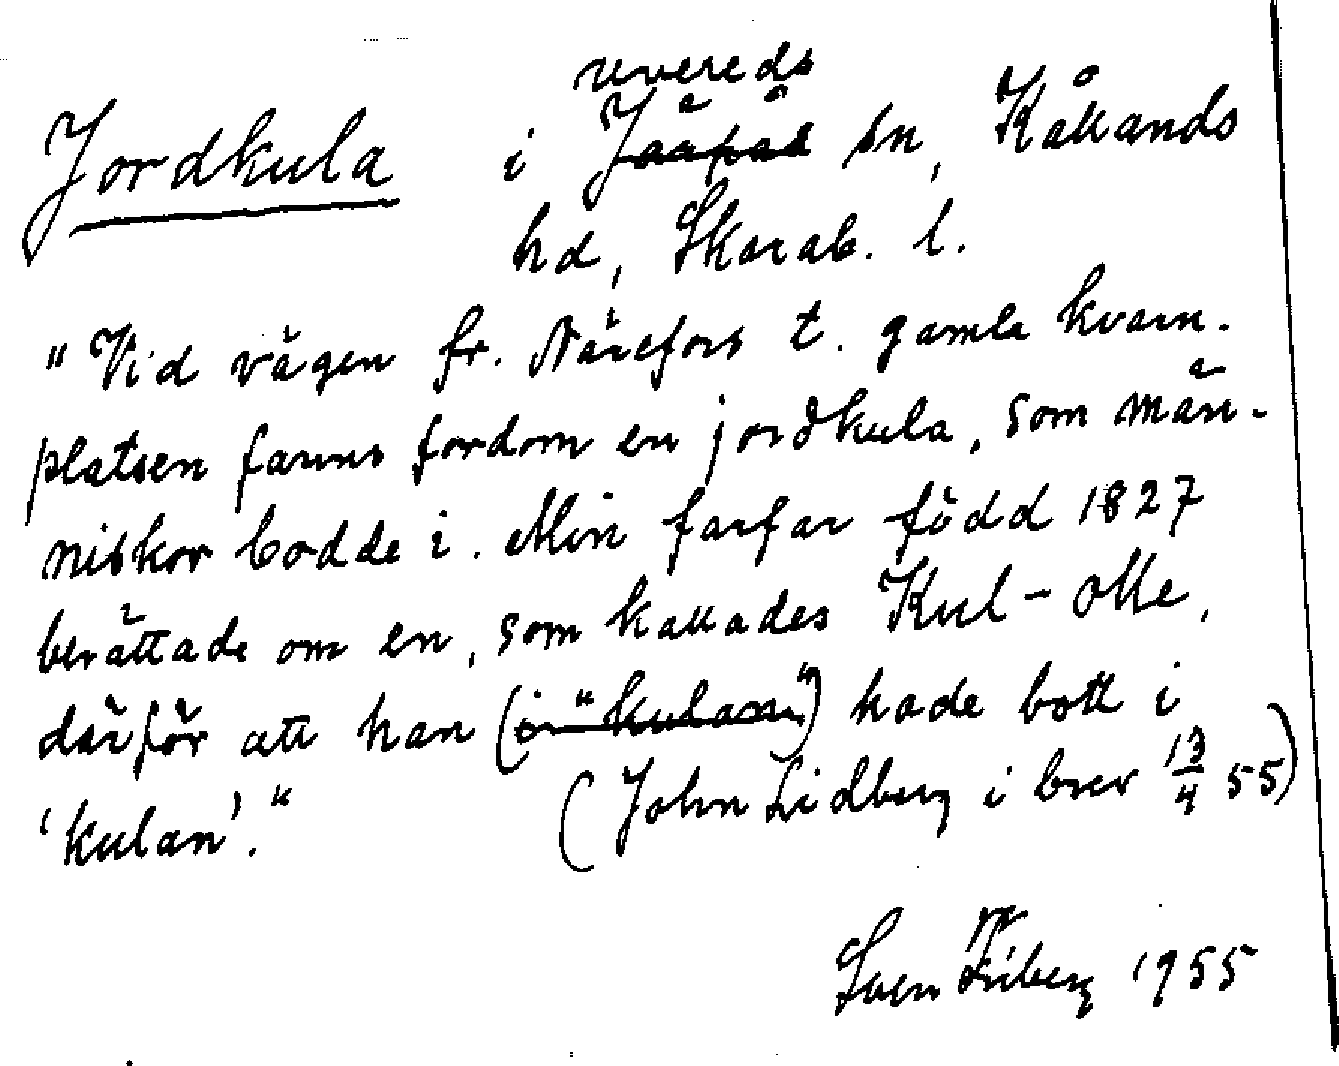 uvereds
Jordkula i Järpås sn, Kållands
hd, Skarab. l.
"Vid vägen fr. Närefors t. gamla kvarn-
platsen fanns fordom en jordkula, som män-
niskor bodde i. Min farfar född 1827
berättade om en, som kallades Kul-Olle,
därför att han (i "kulan") hade bott i
'kulan'." (John Lidberg i brev 13/4 55)
Sven Friberg 1955